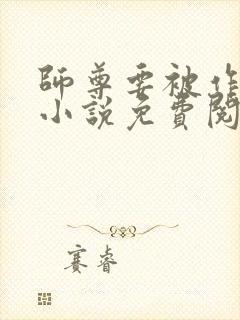 師尊要被作
小說免費閱
赛睿